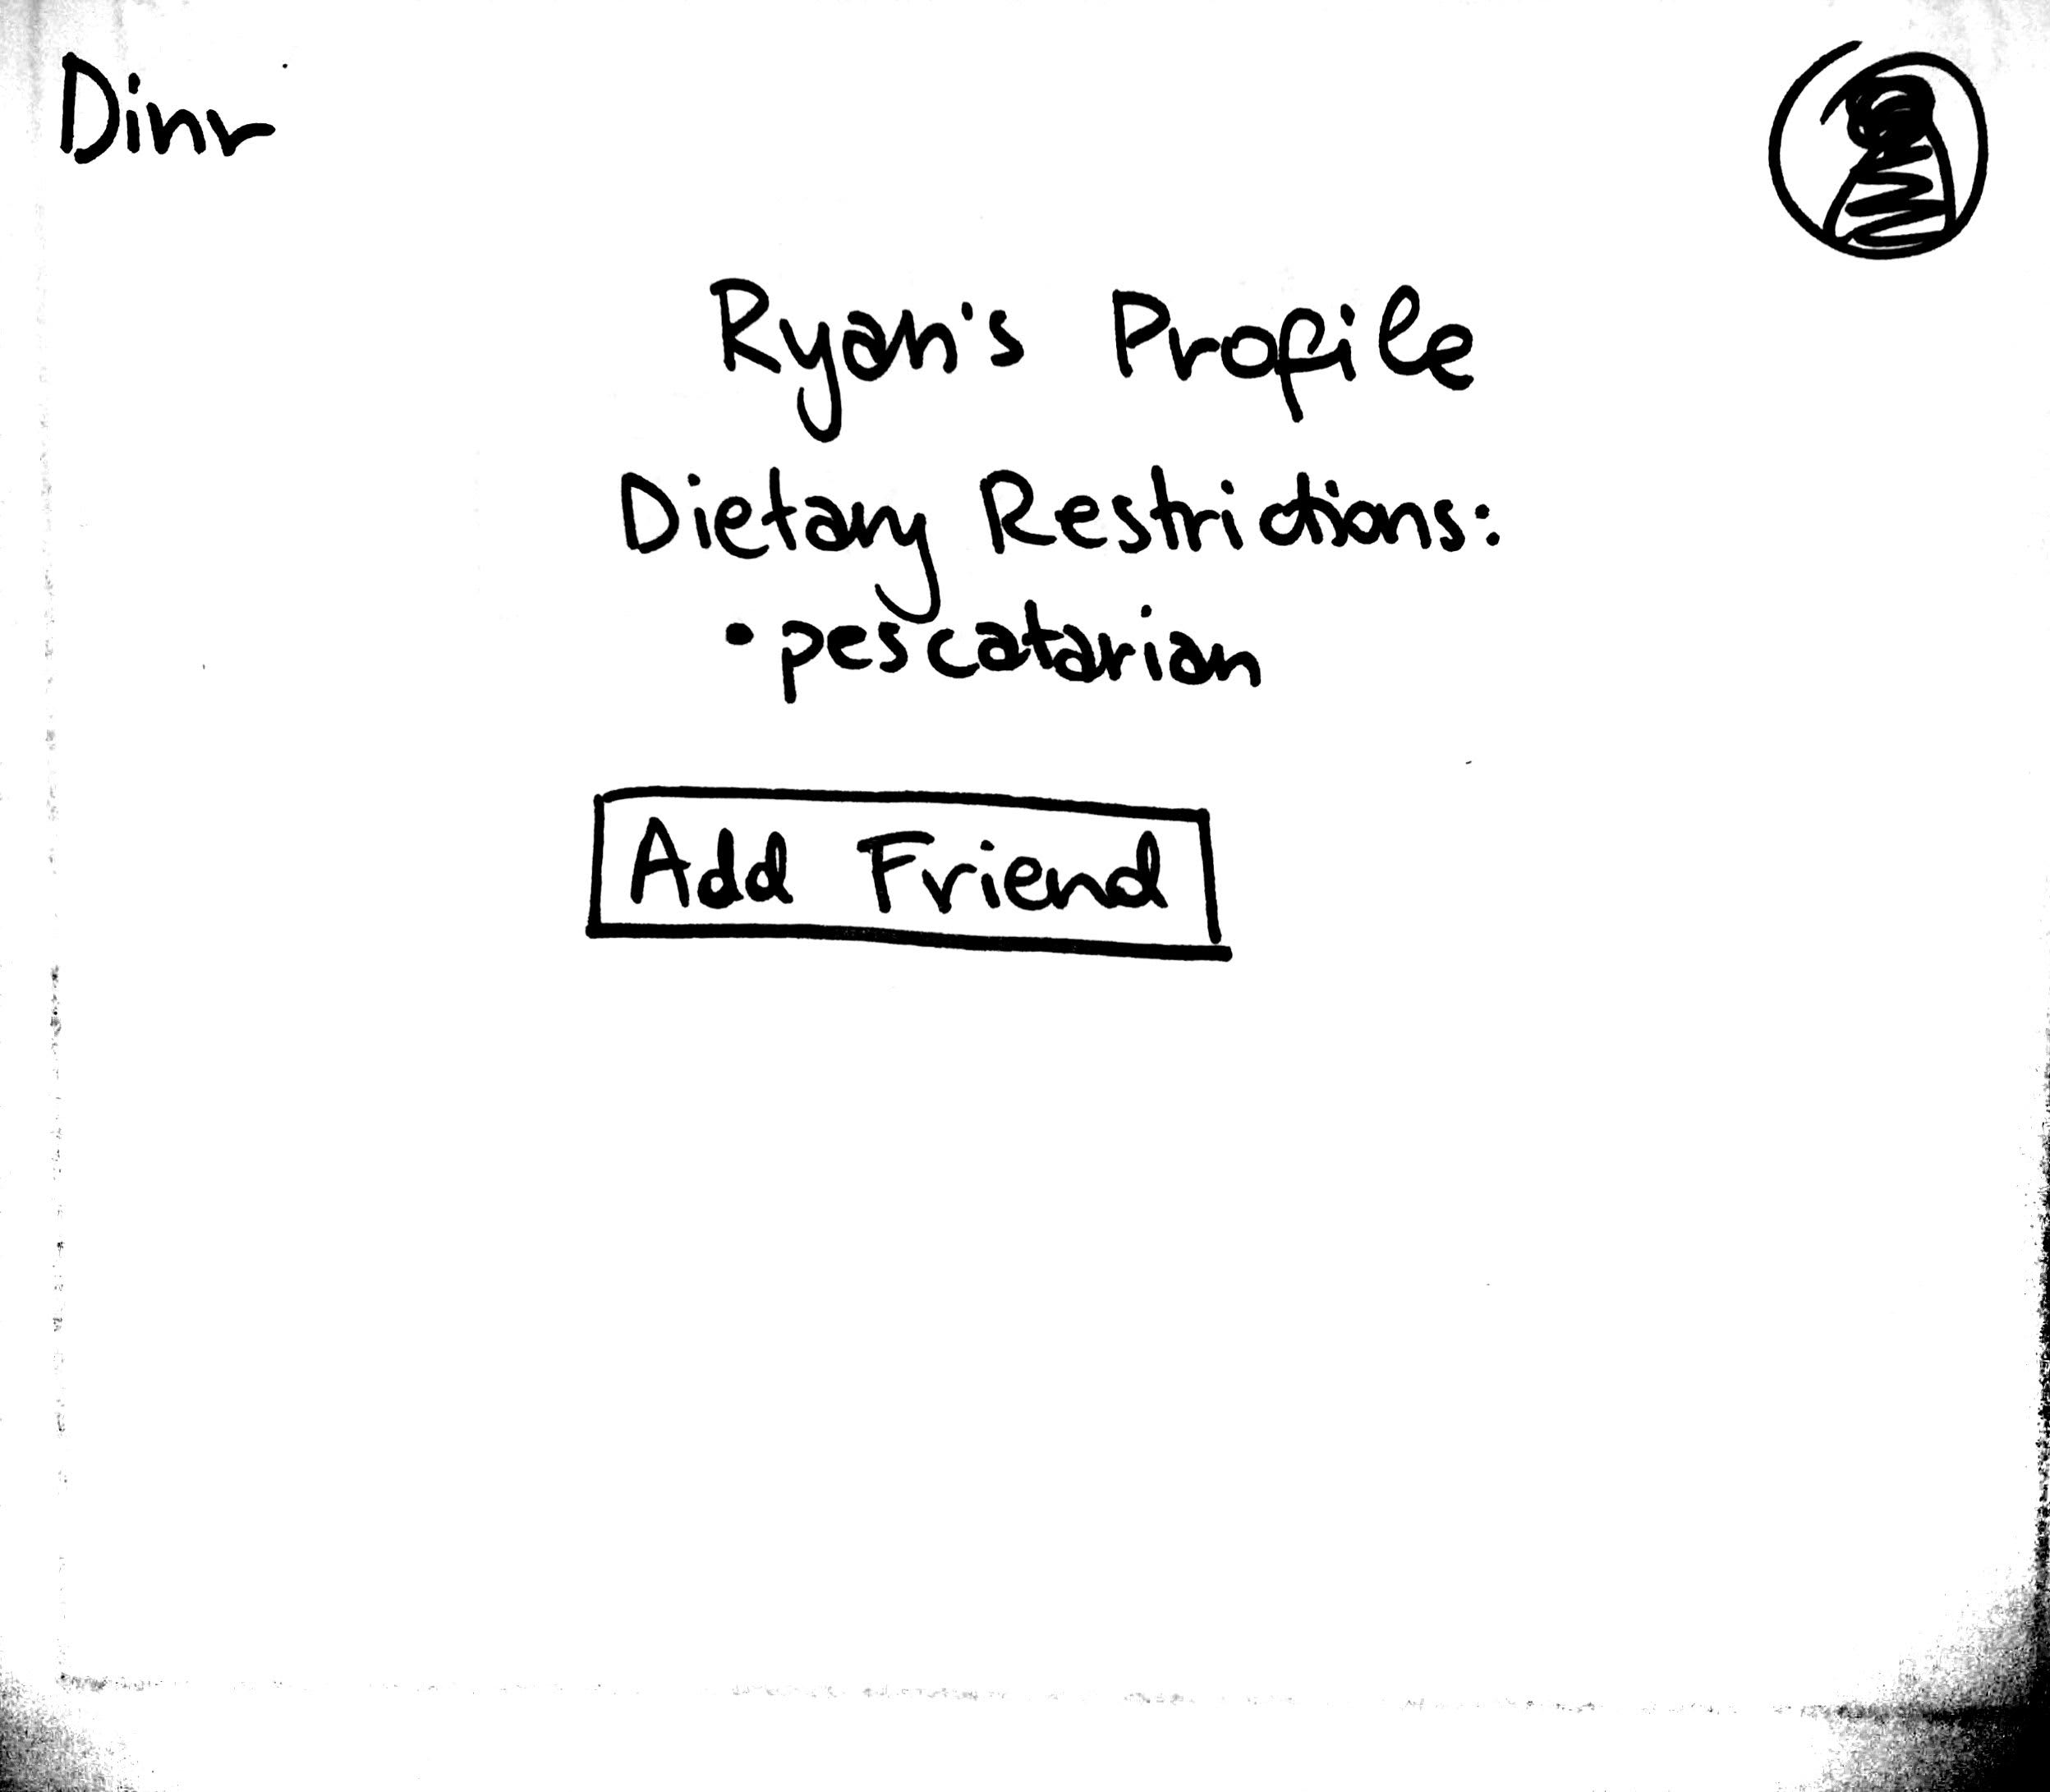 Dinr
Ryan's Profile
Dietary Restrictions:
• pescatarian
Add Friend